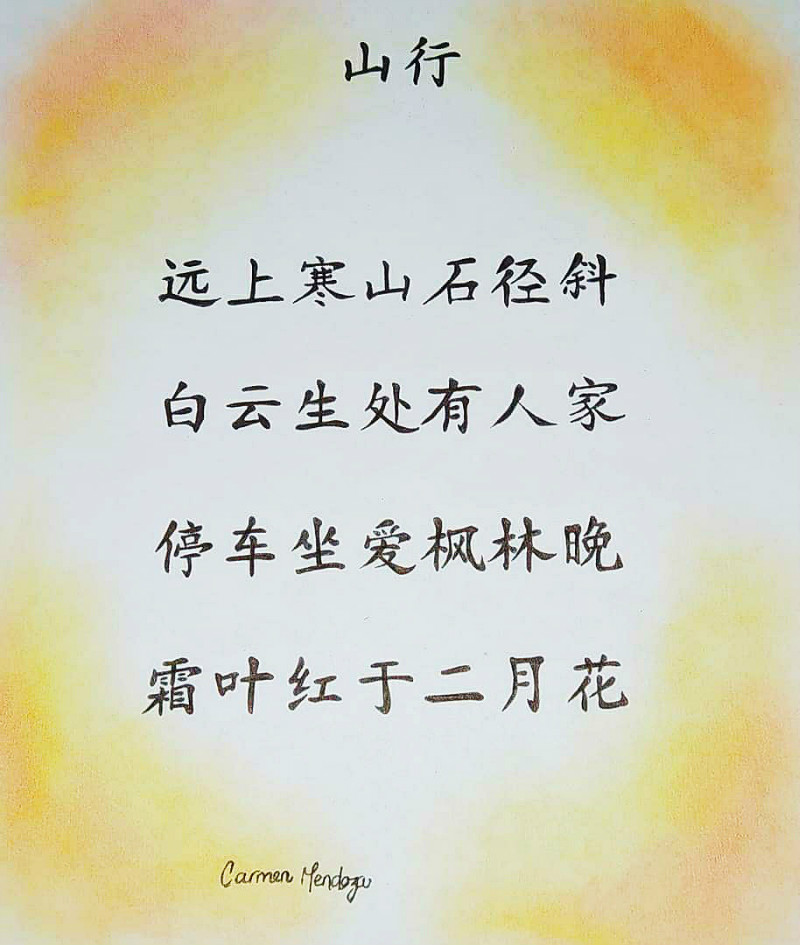 山行
远上寒山石径斜
白云生处有人家
停车坐爱枫林晚
霜叶红于二月花
Carmen Mendoza